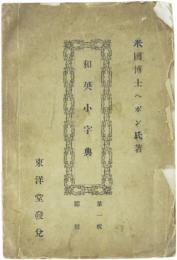 米國博士ヘボン氏著
和英小字典
第一版
東洋堂發兌